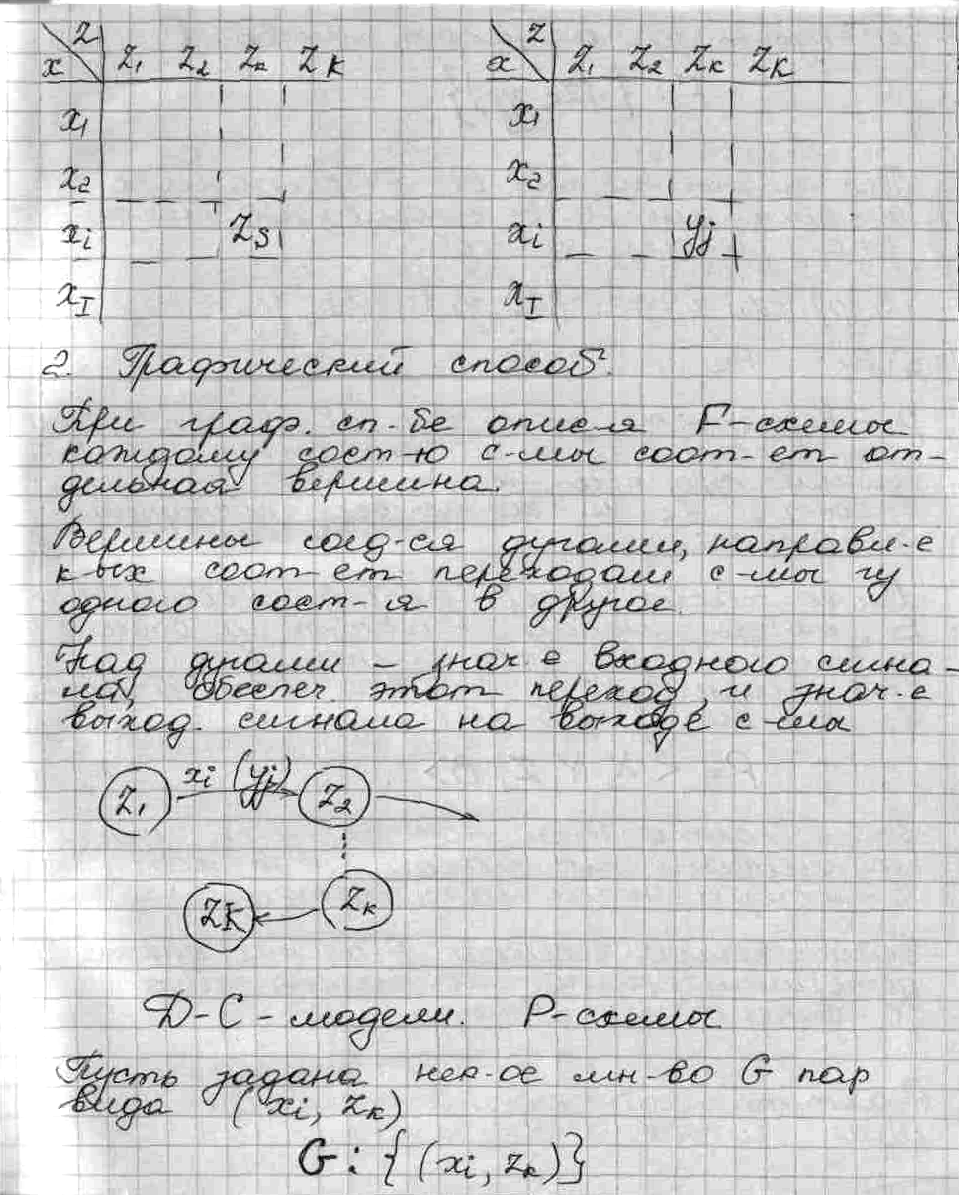 z z
x z₁ z₂ zₖ z_K x z₁ z₂ zₖ z_K
x₁ x₁
x₂ x₂
xᵢ z_s xᵢ yⱼ
x_I x_I
2. Графический способ.
При граф. сп-бе опис-я F-схемы
каждому сост-ю с-мы соот-ет от-
дельная вершина.
Вершины соед-ся дугами, направл-е
к-ых соот-ет переходам с-мы из
одного сост-я в другое.
Над дугами – знач-е входного сигна-
ла, обеспеч. этот переход, и знач-е
выход. сигнала на выходе с-мы
z₁ xᵢ (yⱼ) z₂
z_K zₖ
Д-С-модели. P-схемы
Пусть задана нек-ое мн-во G пар
вида (xᵢ, zₖ)
G: {(xᵢ, zₖ)}